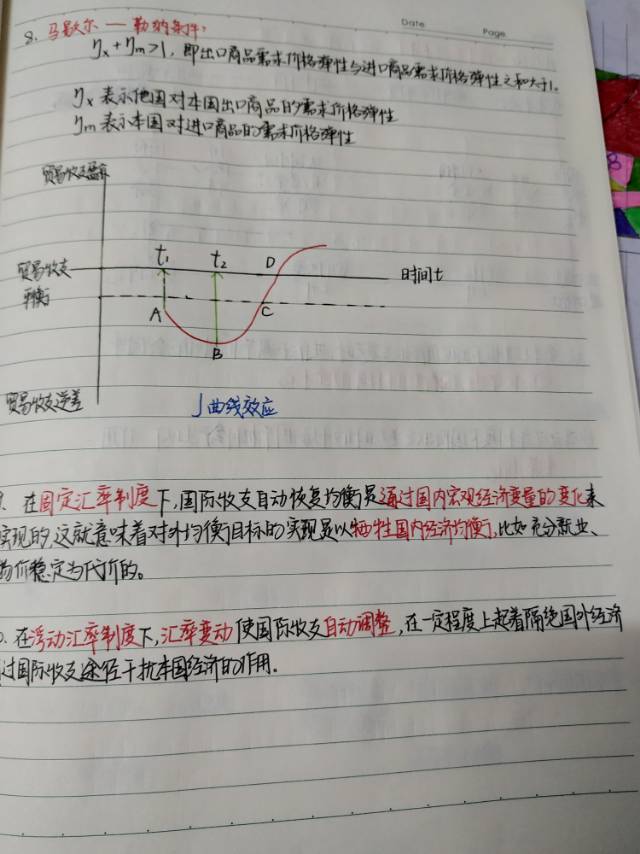 Date
Page
8. 马歇尔 — 勒纳条件:
ηx+ηm>1, 即出口商品需求价格弹性与进口商品需求价格弹性之和大于1.
ηx 表示他国对本国出口商品的需求价格弹性
ηm 表示本国对进口商品的需求价格弹性
贸易收支盈余
t1 t2 D
贸易收支
平衡
时间t
A
C
B
贸易收支逆差
J曲线效应
在固定汇率制度下,国际收支自动恢复均衡是通过国内宏观经济变量的变化来
实现的,这就意味着对外均衡目标的实现是以牺牲国内经济均衡,比如充分就业、
物价稳定为代价的。
在浮动汇率制度下,汇率变动使国际收支自动调整,在一定程度上起着隔绝国外经济
过国际收支途径干扰本国经济的作用.
8